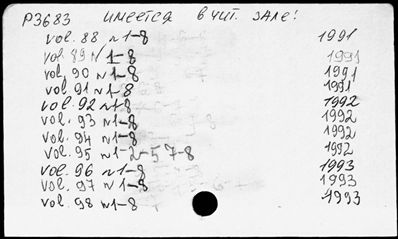 P3683 имеется в чит. зале!
vol. 88 N 1-8 1991
vol. 89 N 1-8 1991
vol. 90 N 1-8 1991
vol. 91 N 1-8 1991
vol. 92 N 1-8 1992
vol. 93 N 1-8 1992
vol. 94 N 1-8 1992
vol. 95 N 1-2-5 7-8 1992
vol. 96 N 1-8 1993
vol. 97 N 1-8 1993
vol. 98 N 1-8 1993